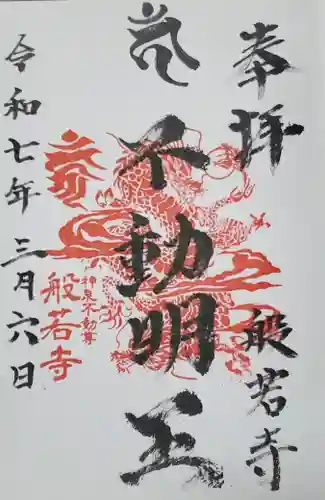 奉拝
般若寺
不動明王
神泉不動尊
般若寺
令和七年三月六日